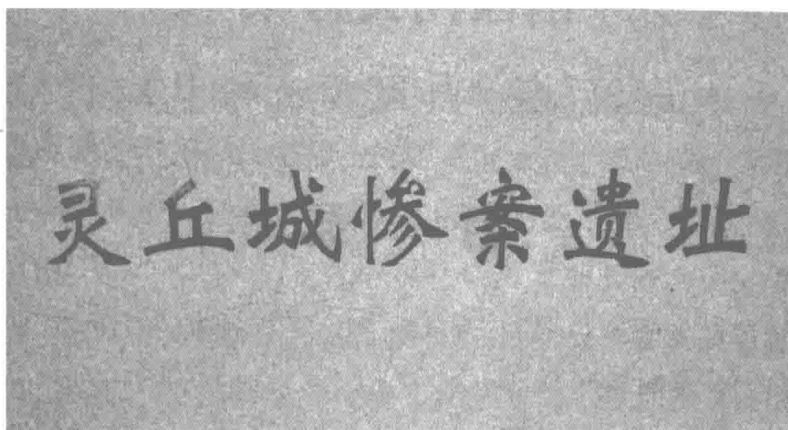 灵丘城惨案遗址